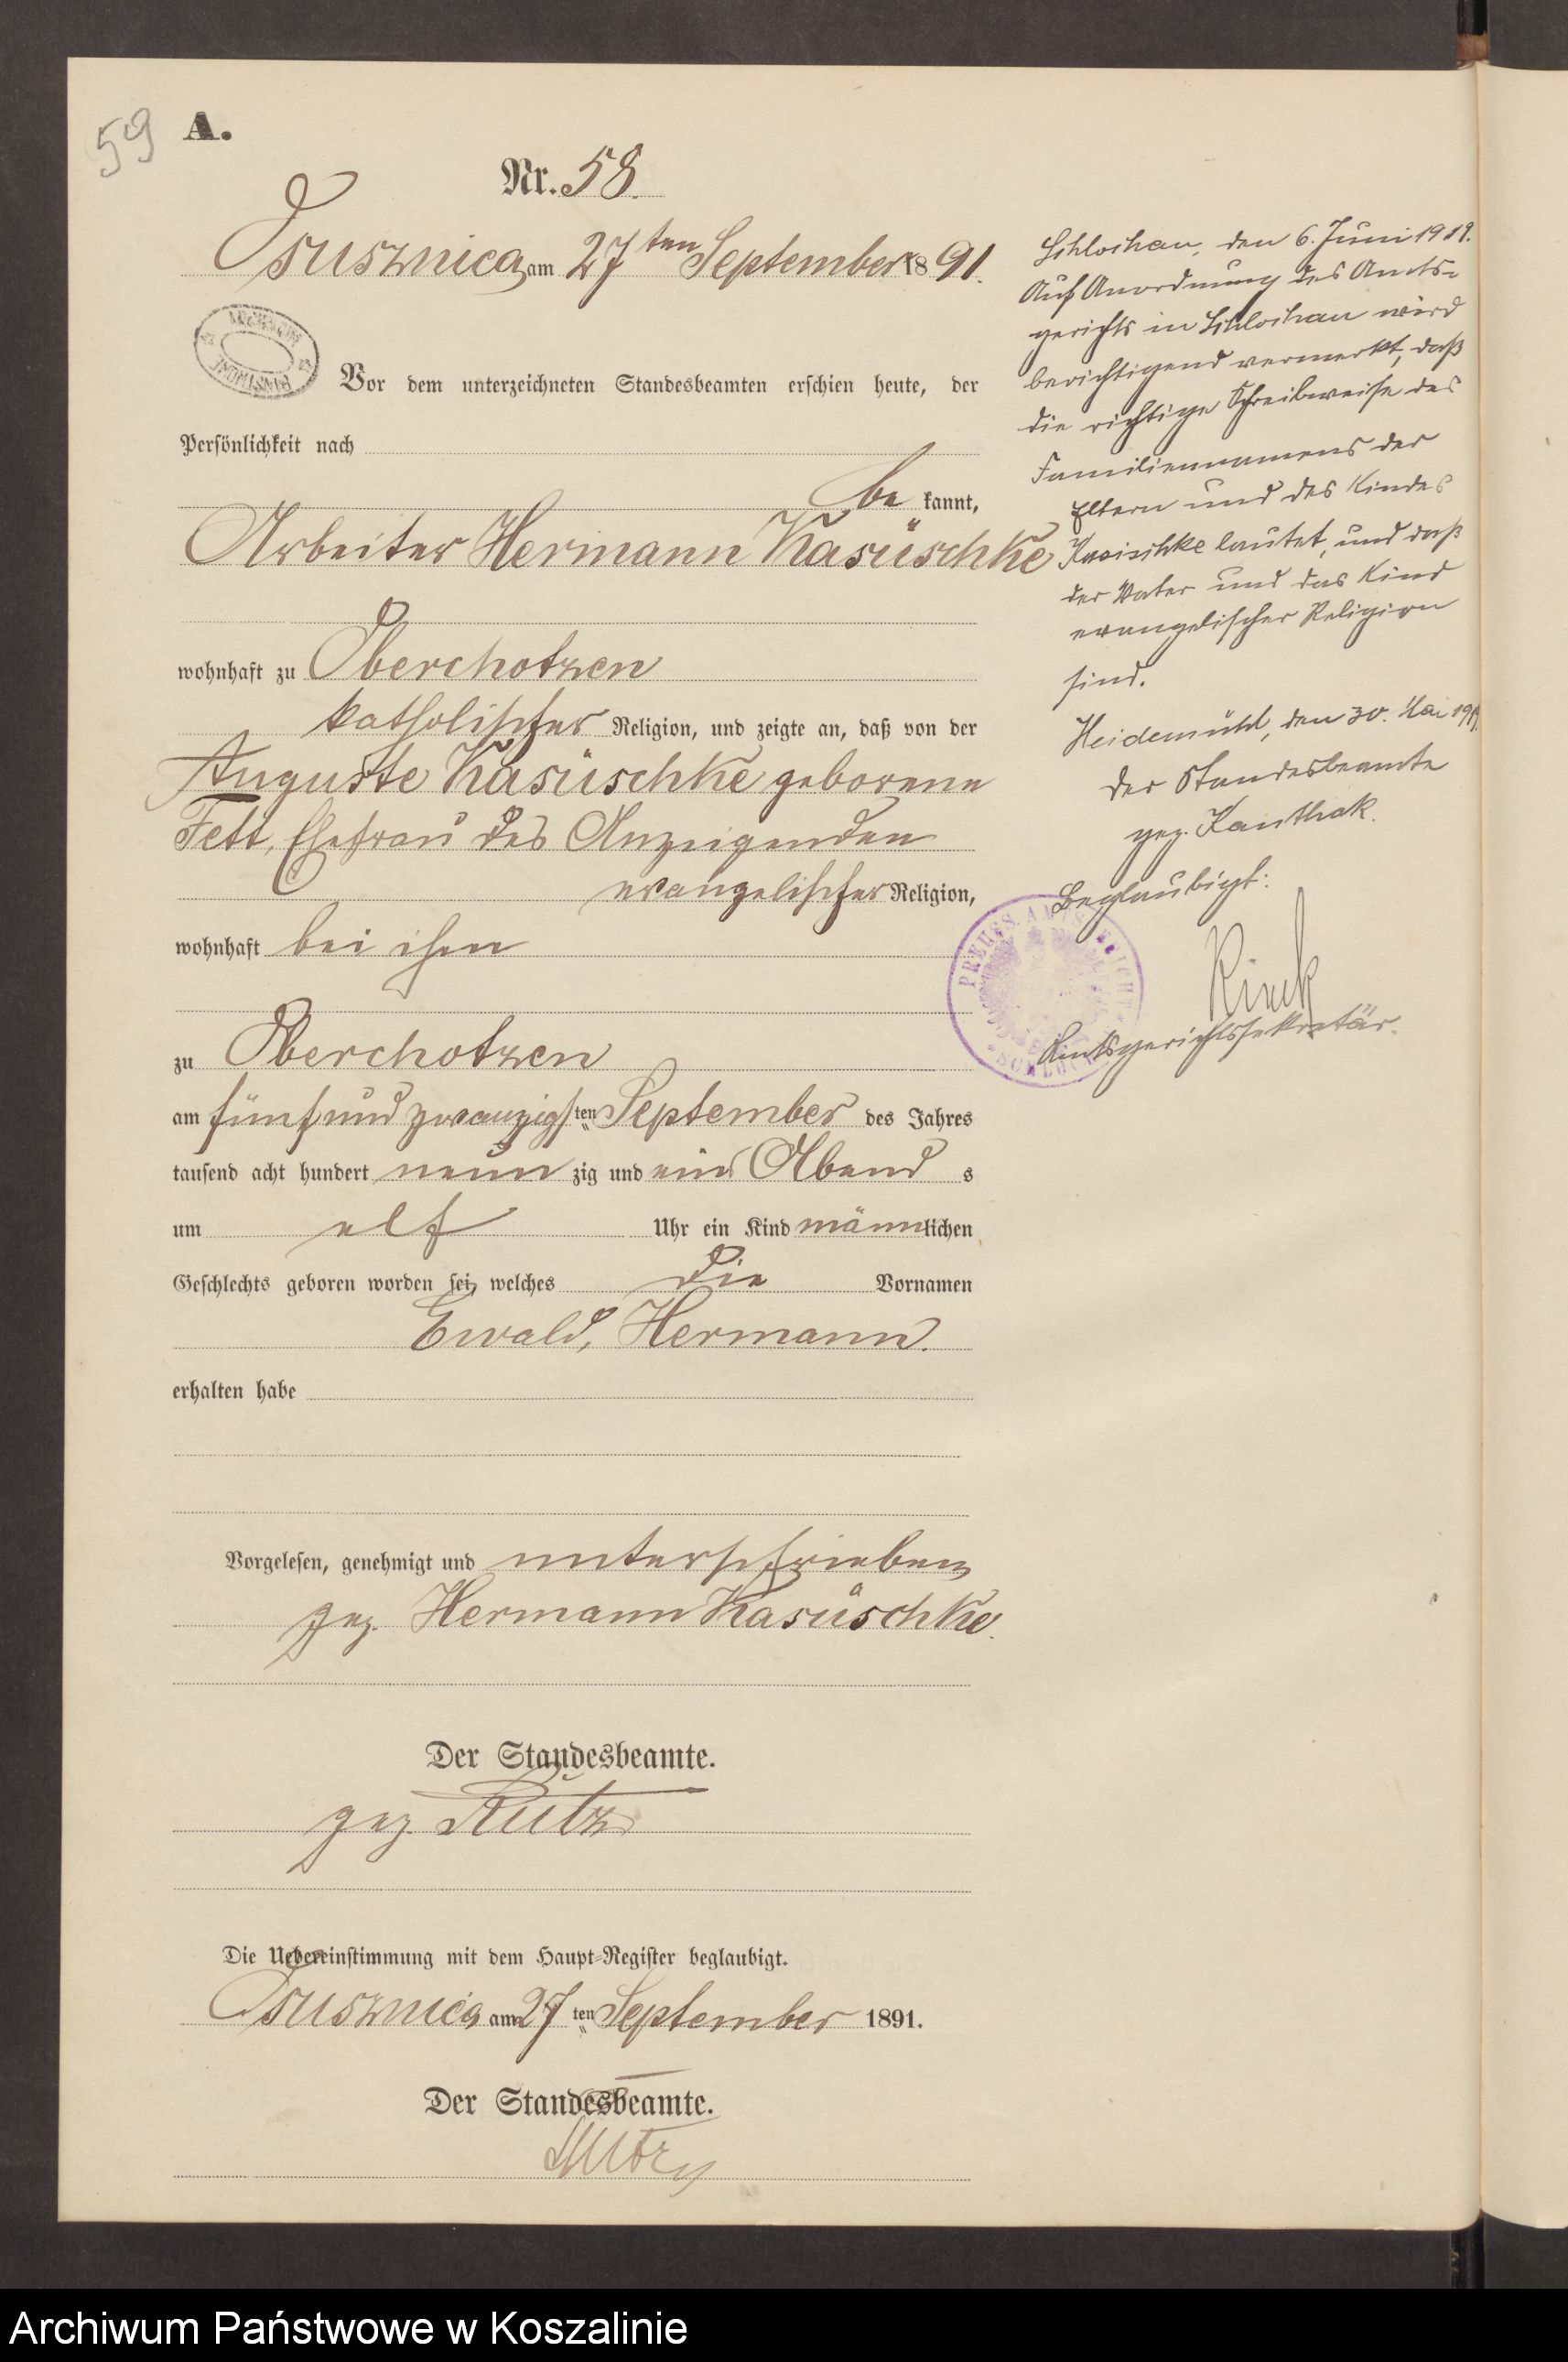 59
A.
Nr. 58.
am 27ten September 1891.
Vor dem unterzeichneten Standesbeamten erschien heute, der
Persönlichkeit nach
be kannt,
Arbeiter Hermann Kasüschke
wohnhaft zu Oberchotzen
katholischer Religion, und zeigte an, daß von der
Auguste Kasüschke geborene
Fett, Ehefrau des Anzeigenden
evangelischer Religion,
wohnhaft bei ihm
zu Oberchotzen
am fünf und zwanzigsten September des Jahres
tausend acht hundert neun zig und eins Abend s
um elf Uhr ein Kind männlichen
Geschlechts geboren worden sei, welches die Vornamen
Ewald, Hermann.
erhalten habe
Vorgelesen, genehmigt und unterschrieben
gez. Hermann Kasüschke.
Der Standesbeamte.
gez. Rutz
Die Uebereinstimmung mit dem Haupt-Register beglaubigt.
am 27ten September 1891.
Der Standesbeamte.
Rutz
Schlochau, den 6. Juni 1919.
Auf Anordnung des Amts-
gerichts in Schlochau wird
berichtigend vermerkt, daß
die richtige Schreibweise des
Familiennamens der
Eltern und des Kindes
Kasischke lautet, und daß
der Vater und das Kind
evangelischer Religion
sind.
Heidemühl, den 30. Mai 1919.
Der Standesbeamte
gez. Kanthak.
Beglaubigt:
Amtsgerichtssekretär.
Archiwum Państwowe w Koszalinie